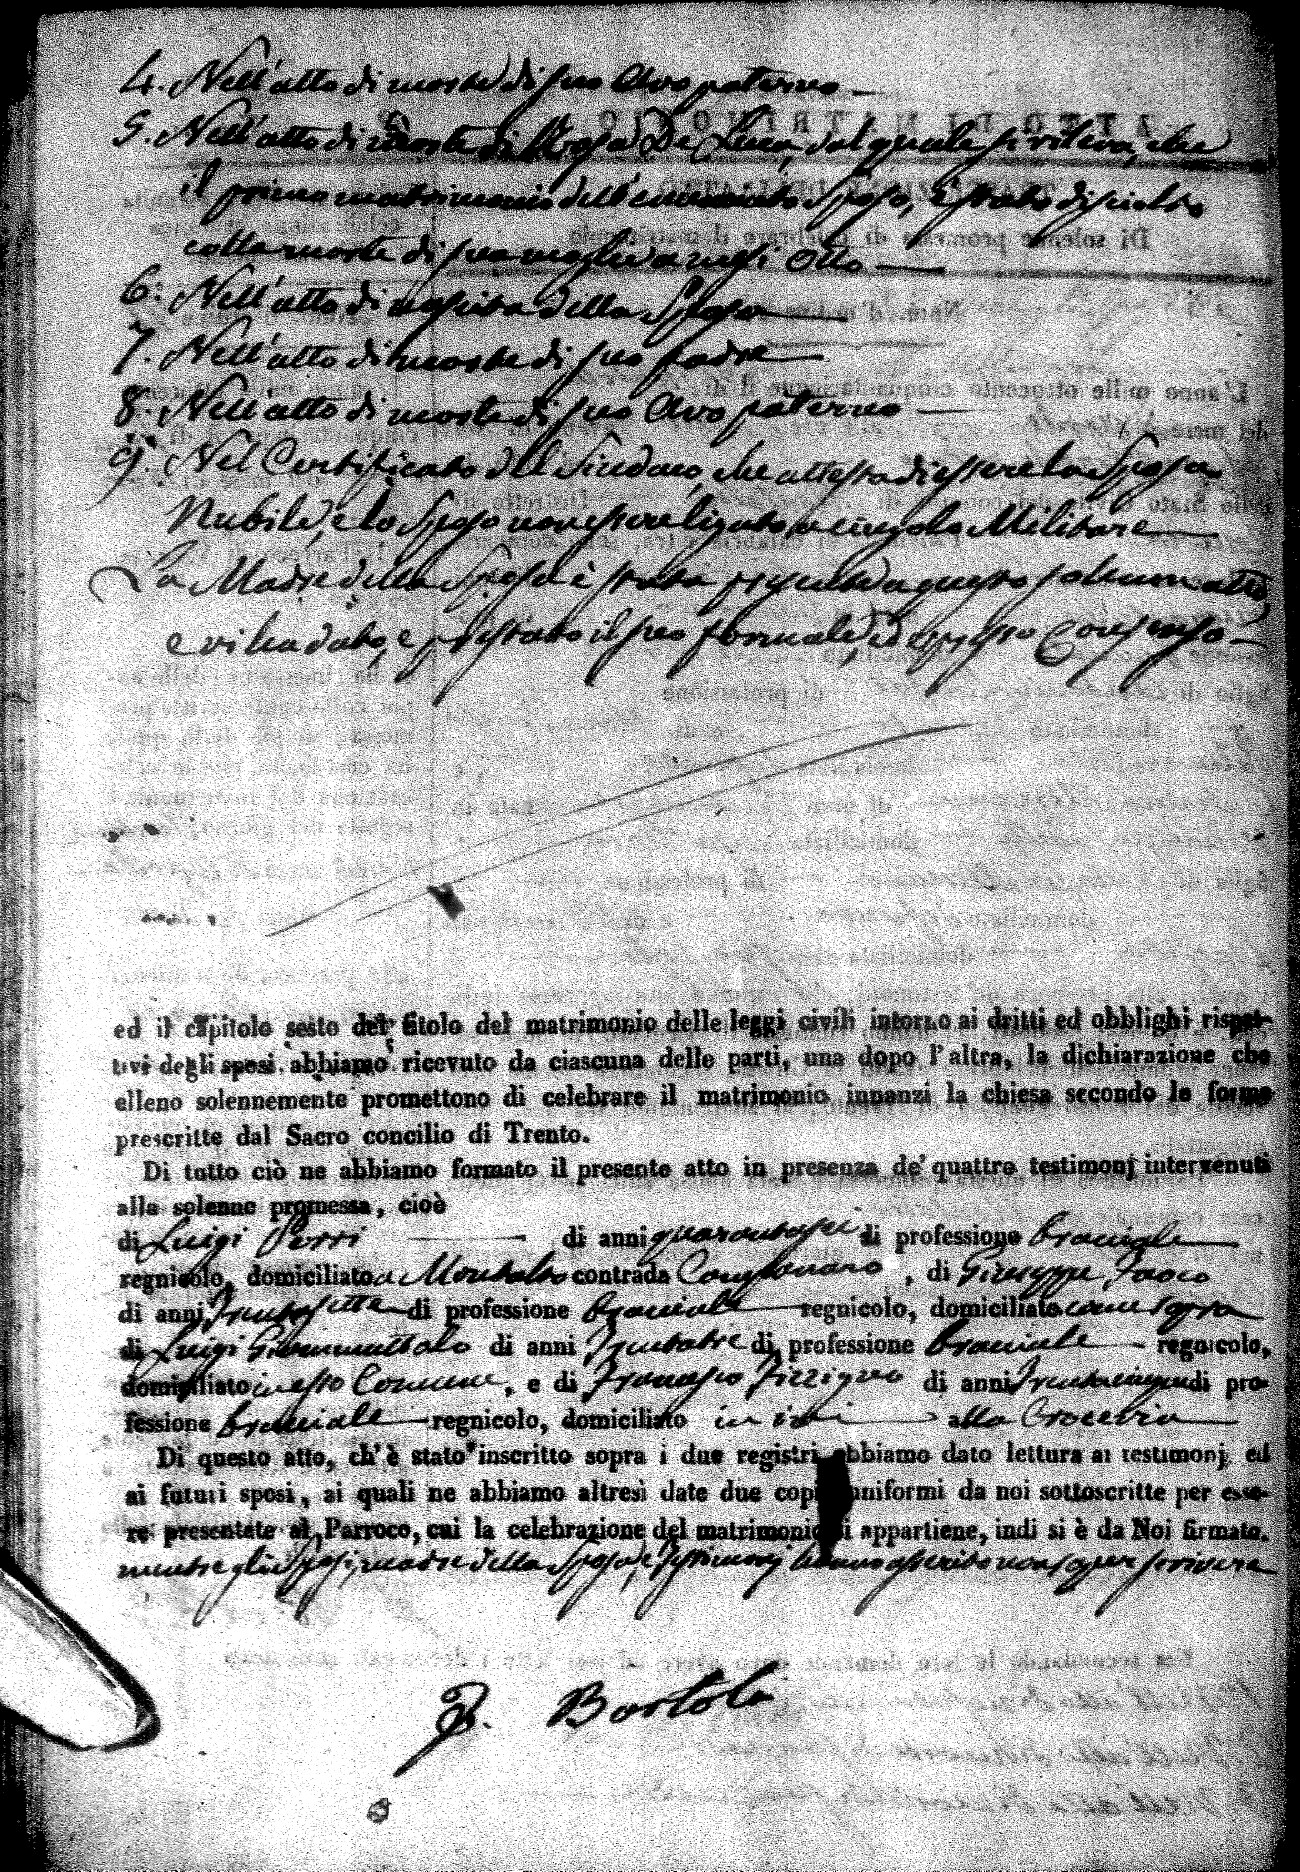 4. Nell'atto di morte di suo Avo paterno
5. Nell'atto di morte di Rosa De Luca, dal quale si rileva, che
il primo matrimonio dell'enunciato Sposo, è stato disciolto
colla morte di sua moglie a mesi otto
6. Nell'atto di nascita della Sposa
7. Nell'atto di morte di suo padre
8. Nell'atto di morte di suo Avo paterno
9. Nel Certificato del Sindaco, che attesta di essere la Sposa
Nubile, e lo Sposo non essere ligato a cingolo Militare
La Madre della Sposa è stata presente a questo solenne atto,
e vi ha dato, e prestato il suo formale, ed espresso Consenso
ed il capitolo sesto del titolo del matrimonio delle leggi civili intorno ai dritti ed obblighi rispet-
tivi degli sposi, abbiamo ricevuto da ciascuna delle parti, una dopo l'altra, la dichiarazione che
elleno solennemente promettono di celebrare il matrimonio innanzi la chiesa secondo le forme
prescritte dal Sacro concilio di Trento.
Di tutto ciò ne abbiamo formato il presente atto in presenza de' quattro testimonj intervenuti
alla solenne promessa, cioè
di Luigi Porri di anni quarantasei di professione bracciale
regnicolo, domiciliato a Montalto contrada , di Giuseppe
di anni trentasette di professione bracciale regnicolo, domiciliato come sopra
di Luigi di anni trentatre di professione bracciale regnicolo,
domiciliato in esso Comune, e di Francesco di anni trentacinque di pro-
fessione bracciale regnicolo, domiciliato in ivi alla Crocevia
Di questo atto, ch'è stato inscritto sopra i due registri abbiamo dato lettura ai testimonj, ed
ai futuri sposi, ai quali ne abbiamo altresì date due copie uniformi da noi sottoscritte per esse-
re presentate al Parroco, cui la celebrazione del matrimonio si appartiene, indi si è da Noi firmato.
mentre gli Sposi, madre della Sposa, e Testimonj hanno asserito non saper scrivere
B. Bartola